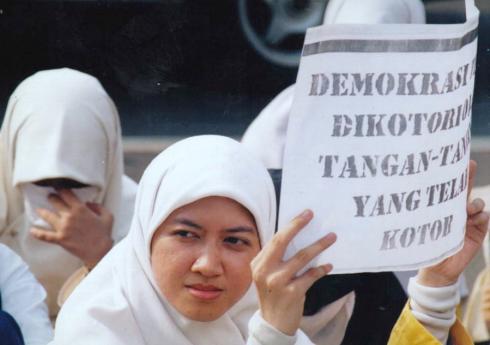 DEMOKRASI
DIKOTORI
TANGAN-
YANG TELAH
KOTOR